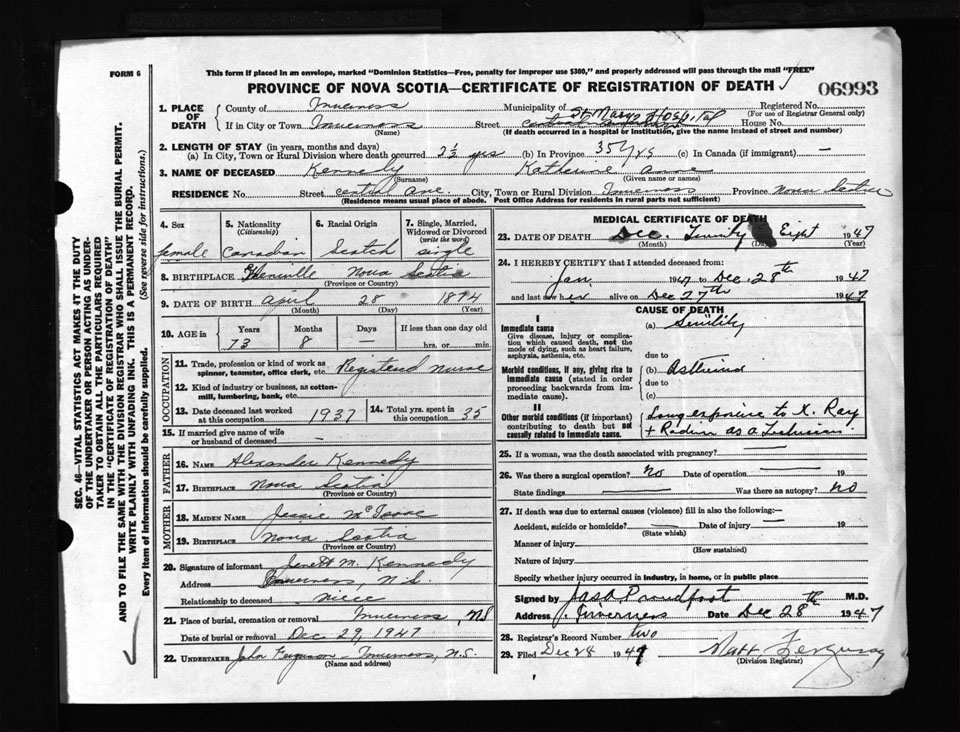 FORM 6
This form if placed in an envelope, marked "Dominion Statistics—Free, penalty for improper use $300," and properly addressed will pass through the mail "FREE"
PROVINCE OF NOVA SCOTIA—CERTIFICATE OF REGISTRATION OF DEATH
06993
1. PLACE OF DEATH
County of Inverness Municipality of Registered No.
(For use of Registrar General only)
St Marys Hospital
If in City or Town Inverness Street House No.
(Name) (If death occurred in a hospital or institution, give the name instead of street and number)
2. LENGTH OF STAY (in years, months and days)
(a) In City, Town or Rural Division where death occurred 2½ yrs (b) In Province 35 yrs (c) In Canada (if immigrant) —
3. NAME OF DECEASED Kennedy Katherine Anne
(Surname) (Given name or names)
RESIDENCE No. Street central Ave. City, Town or Rural Division Inverness Province Nova Scotia
(Residence means usual place of abode. Post Office Address for residents in rural parts not sufficient)
4. Sex
female
5. Nationality
(Citizenship)
Canadian
6. Racial Origin
Scotch
7. Single, Married, Widowed or Divorced
(write the word)
single
8. BIRTHPLACE Nova Scotia
(Province or Country)
9. DATE OF BIRTH April 28 1874
(Month) (Day) (Year)
10. AGE in Years Months Days If less than one day old
73 8 — hrs. or min.
OCCUPATION
11. Trade, profession or kind of work as spinner, teamster, office clerk, etc. Registered Nurse
12. Kind of industry or business, as cotton-mill, lumbering, bank, etc.
13. Date deceased last worked at this occupation 1937
14. Total yrs. spent in this occupation 35
15. If married give name of wife or husband of deceased —
FATHER
16. NAME Alexander Kennedy
17. BIRTHPLACE Nova Scotia
(Province or Country)
MOTHER
18. MAIDEN NAME Jessie McIsaac
19. BIRTHPLACE Nova Scotia
(Province or Country)
20. Signature of informant M. Kennedy
Address Inverness, N.S.
Relationship to deceased niece
21. Place of burial, cremation or removal Inverness, NS
Date of burial or removal Dec 29, 1947
22. UNDERTAKER John Ferguson - Inverness, N.S.
(Name and address)
MEDICAL CERTIFICATE OF DEATH
23. DATE OF DEATH Dec. Twenty Eight 1947
(Month) (Day) (Year)
24. I HEREBY CERTIFY that I attended deceased from:
Jan 1947 to Dec. 28th 1947
and last saw her alive on Dec 27th 1947
CAUSE OF DEATH
I
Immediate cause
Give disease, injury or complication which caused death, not the mode of dying, such as heart failure, asphyxia, asthenia, etc.
(a) Senility
due to
Morbid conditions, if any, giving rise to immediate cause (stated in order proceeding backwards from immediate cause).
(b)
due to
(c)
II
Other morbid conditions (if important) contributing to death but not causally related to immediate cause.
Long exposure to X. Ray
+ Radium as a Technician.
25. If a woman, was the death associated with pregnancy? —
26. Was there a surgical operation? No Date of operation — 19
State findings — Was there an autopsy? No
27. If death was due to external causes (violence) fill in also the following:
Accident, suicide or homicide? — Date of injury — 19
(State which)
Manner of injury
(How sustained)
Nature of injury
Specify whether injury occurred in industry, in home, or in public place
Signed by Proudfoot M.D.
Address Inverness Date Dec 28th 1947
28. Registrar's Record Number two
29. Filed Dec 28 1947 Matt Ferguson
(Division Registrar)
SEC. 46—VITAL STATISTICS ACT MAKES IT THE DUTY
OF THE UNDERTAKER OR PERSON ACTING AS UNDER-
TAKER TO OBTAIN ALL THE PARTICULARS REQUIRED
IN THE "CERTIFICATE OF REGISTRATION OF DEATH"
AND TO FILE THE SAME WITH THE DIVISION REGISTRAR WHO SHALL ISSUE THE BURIAL PERMIT.
WRITE PLAINLY WITH UNFADING INK. THIS IS A PERMANENT RECORD.
Every item of information should be carefully supplied. (See reverse side for instructions.)